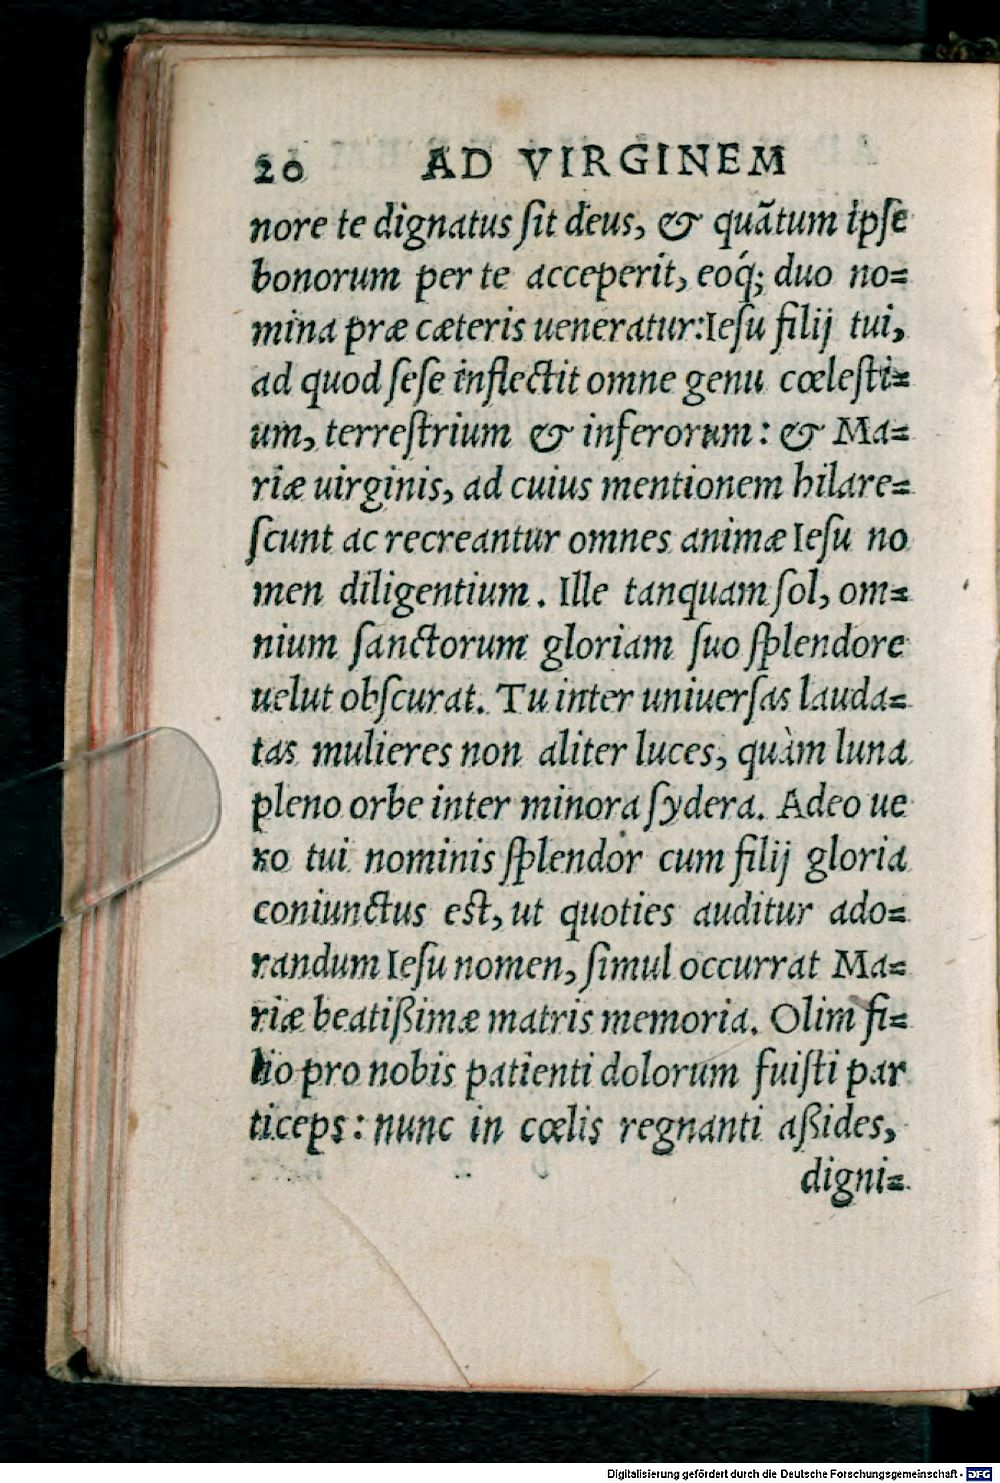 20 AD VIRGINEM
nore te dignatus ſit deus, & quãtum ipſe
bonorum per te acceperit, eoq́; duo no=
mina præ cæteris ueneratur: Ieſu filij tui,
ad quod ſeſe inflectit omne genu cœleſti=
um, terreſtrium & inferorum: & Ma=
riæ uirginis, ad cuius mentionem hilare=
ſcunt ac recreantur omnes animæ Ieſu no
men diligentium. Ille tanquam ſol, om=
nium ſanctorum gloriam ſuo ſplendore
uelut obſcurat. Tu inter uniuerſas lauda=
tas mulieres non aliter luces, quàm luna
pleno orbe inter minora ſydera. Adeo ue
ro tui nominis ſplendor cum filij gloria
coniunctus eſt, ut quoties auditur ado=
randum Ieſu nomen, ſimul occurrat Ma=
riæ beatißimæ matris memoria. Olim fi=
lio pro nobis patienti dolorum fuiſti par
ticeps: nunc in cœlis regnanti aßides,
digni=
Digitalisierung gefördert durch die Deutsche Forschungsgemeinschaft - DFG